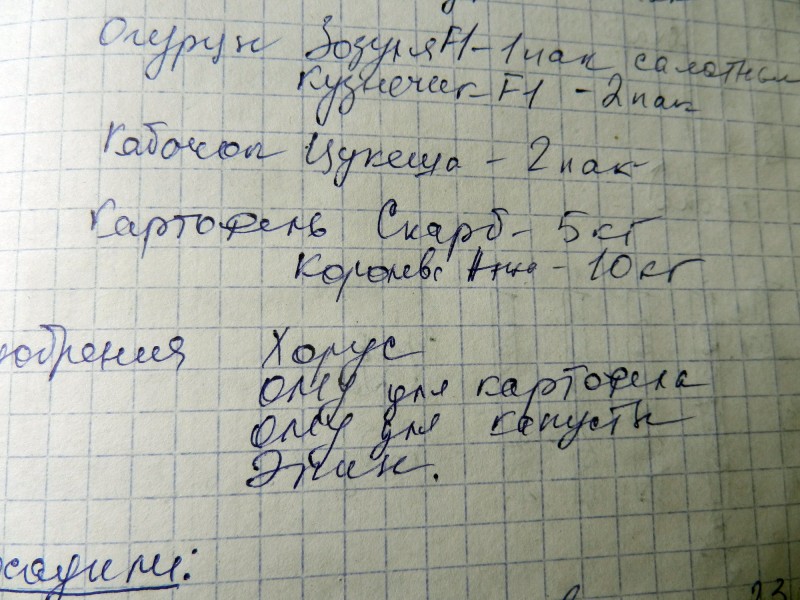 Огурцы Зозуля F1 - 1 пак салатный
Кузнечик F1 - 2 пак
Кабачок Цукеша - 2 пак
Картофель Скарб - 5 кг
Королева Анна - 10 кг
обрения Хорус
ОМУ для картофеля
ОМУ для капусты
Эпин.
осадили:
23